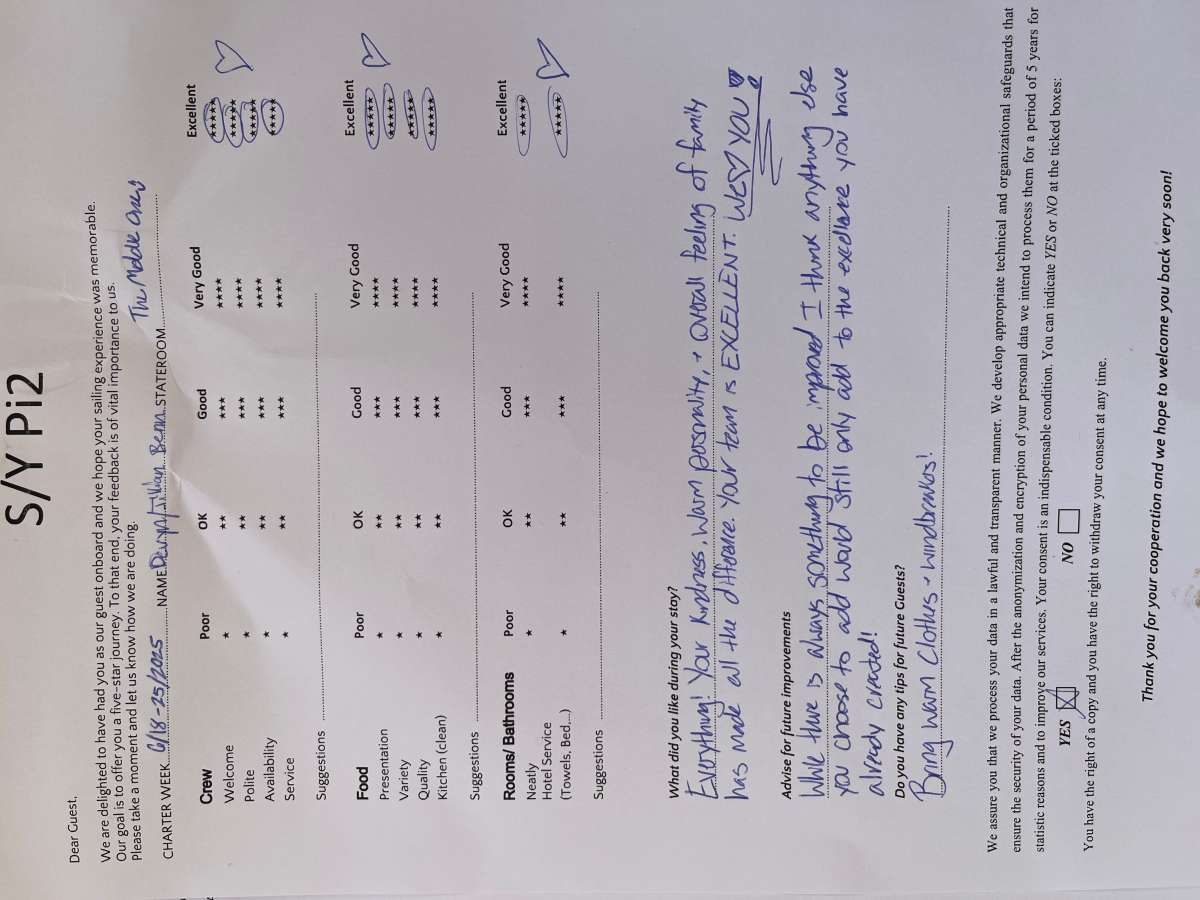 S/Y Pi2
Dear Guest,
We are delighted to have had you as our guest onboard and we hope your sailing experience was memorable.
Our goal is to offer you a five-star journey. To that end, your feedback is of vital importance to us.
Please take a moment and let us know how we are doing.
CHARTER WEEK 6/18-25/2025 NAME Devyn/Jillian STATEROOM The Middle Ones
Crew Poor OK Good Very Good Excellent
Welcome ★ ★★ ★★★ ★★★★ ★★★★★
Polite ★ ★★ ★★★ ★★★★ ★★★★★
Availability ★ ★★ ★★★ ★★★★ ★★★★★
Service ★ ★★ ★★★ ★★★★ ★★★★★
Suggestions
Food Poor OK Good Very Good Excellent
Presentation ★ ★★ ★★★ ★★★★ ★★★★★
Variety ★ ★★ ★★★ ★★★★ ★★★★★
Quality ★ ★★ ★★★ ★★★★ ★★★★★
Kitchen (clean) ★ ★★ ★★★ ★★★★ ★★★★★
Suggestions
Rooms/ Bathrooms Poor OK Good Very Good Excellent
Neatly ★ ★★ ★★★ ★★★★ ★★★★★
Hotel Service
(Towels, Bed,..) ★ ★★ ★★★ ★★★★ ★★★★★
Suggestions
What did you like during your stay?
Everything! Your kindness, warm personality, + overall feeling of family
has made all the difference. Your team is EXCELLENT. We ♡ YOU!
Advise for future improvements
While there is always something to be improved I think anything else
you choose to add would still only add to the excellence you have
already created!
Do you have any tips for future Guests?
Bring warm clothes + windbreakers!
We assure you that we process your data in a lawful and transparent manner. We develop appropriate technical and organizational safeguards that
ensure the security of your data. After the anonymization and encryption of your personal data we intend to process them for a period of 5 years for
statistic reasons and to improve our services. Your consent is an indispensable condition. You can indicate YES or NO at the ticked boxes:
YES ☒ NO ☐
You have the right of a copy and you have the right to withdraw your consent at any time.
Thank you for your cooperation and we hope to welcome you back very soon!